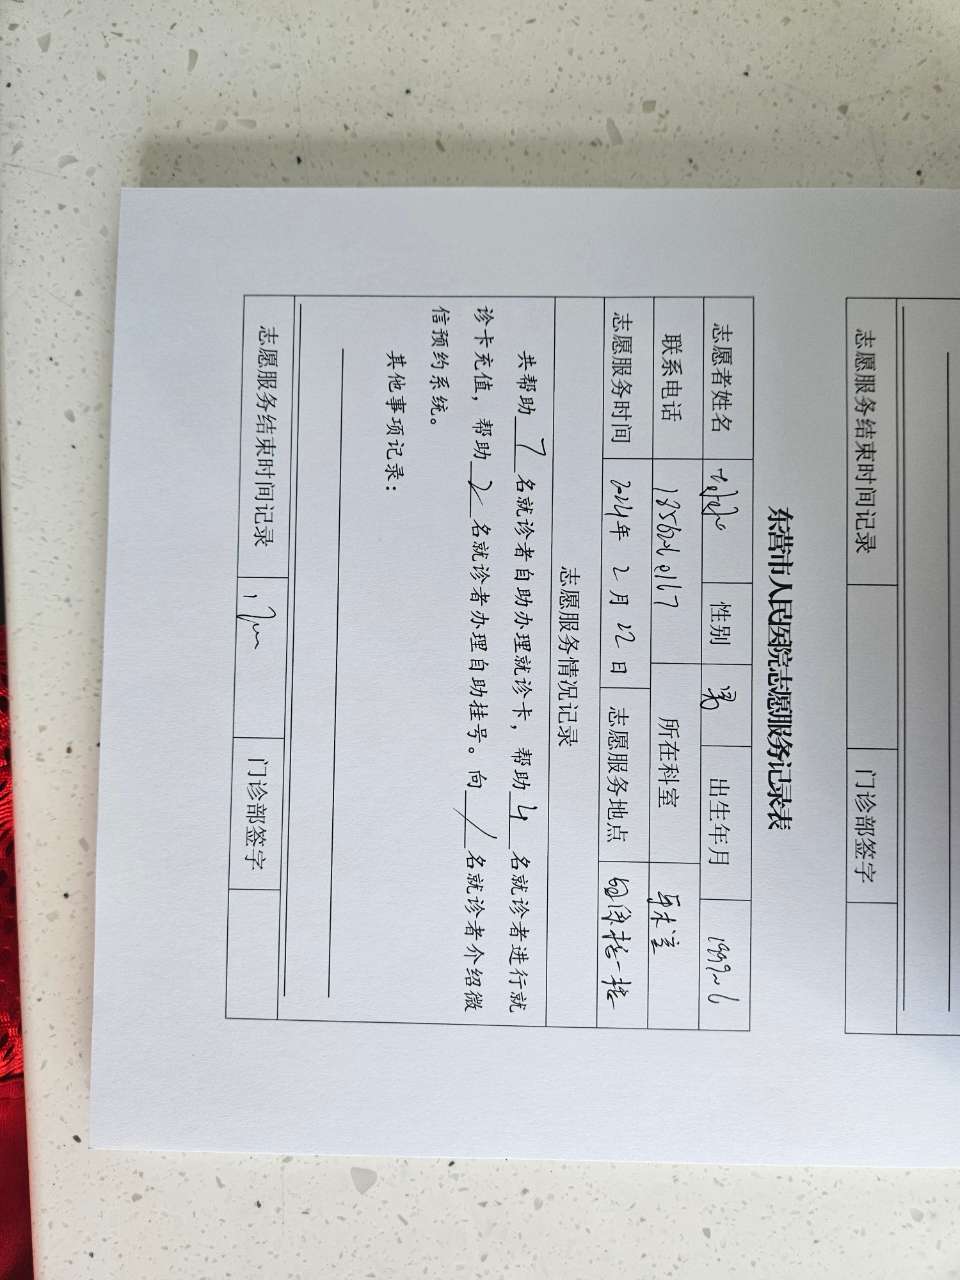 志愿服务结束时间记录 门诊部签字
东营市人民医院志愿服务记录表
志愿者姓名 性别 男 出生年月 1999.6
联系电话 所在科室 手术室
志愿服务时间 2024年 2月 22日 志愿服务地点
志愿服务情况记录
共帮助 7 名就诊者自助办理就诊卡，帮助 4 名就诊者进行就
诊卡充值，帮助 2 名就诊者办理自助挂号。向 / 名就诊者介绍微
信预约系统。
其他事项记录：
志愿服务结束时间记录 门诊部签字